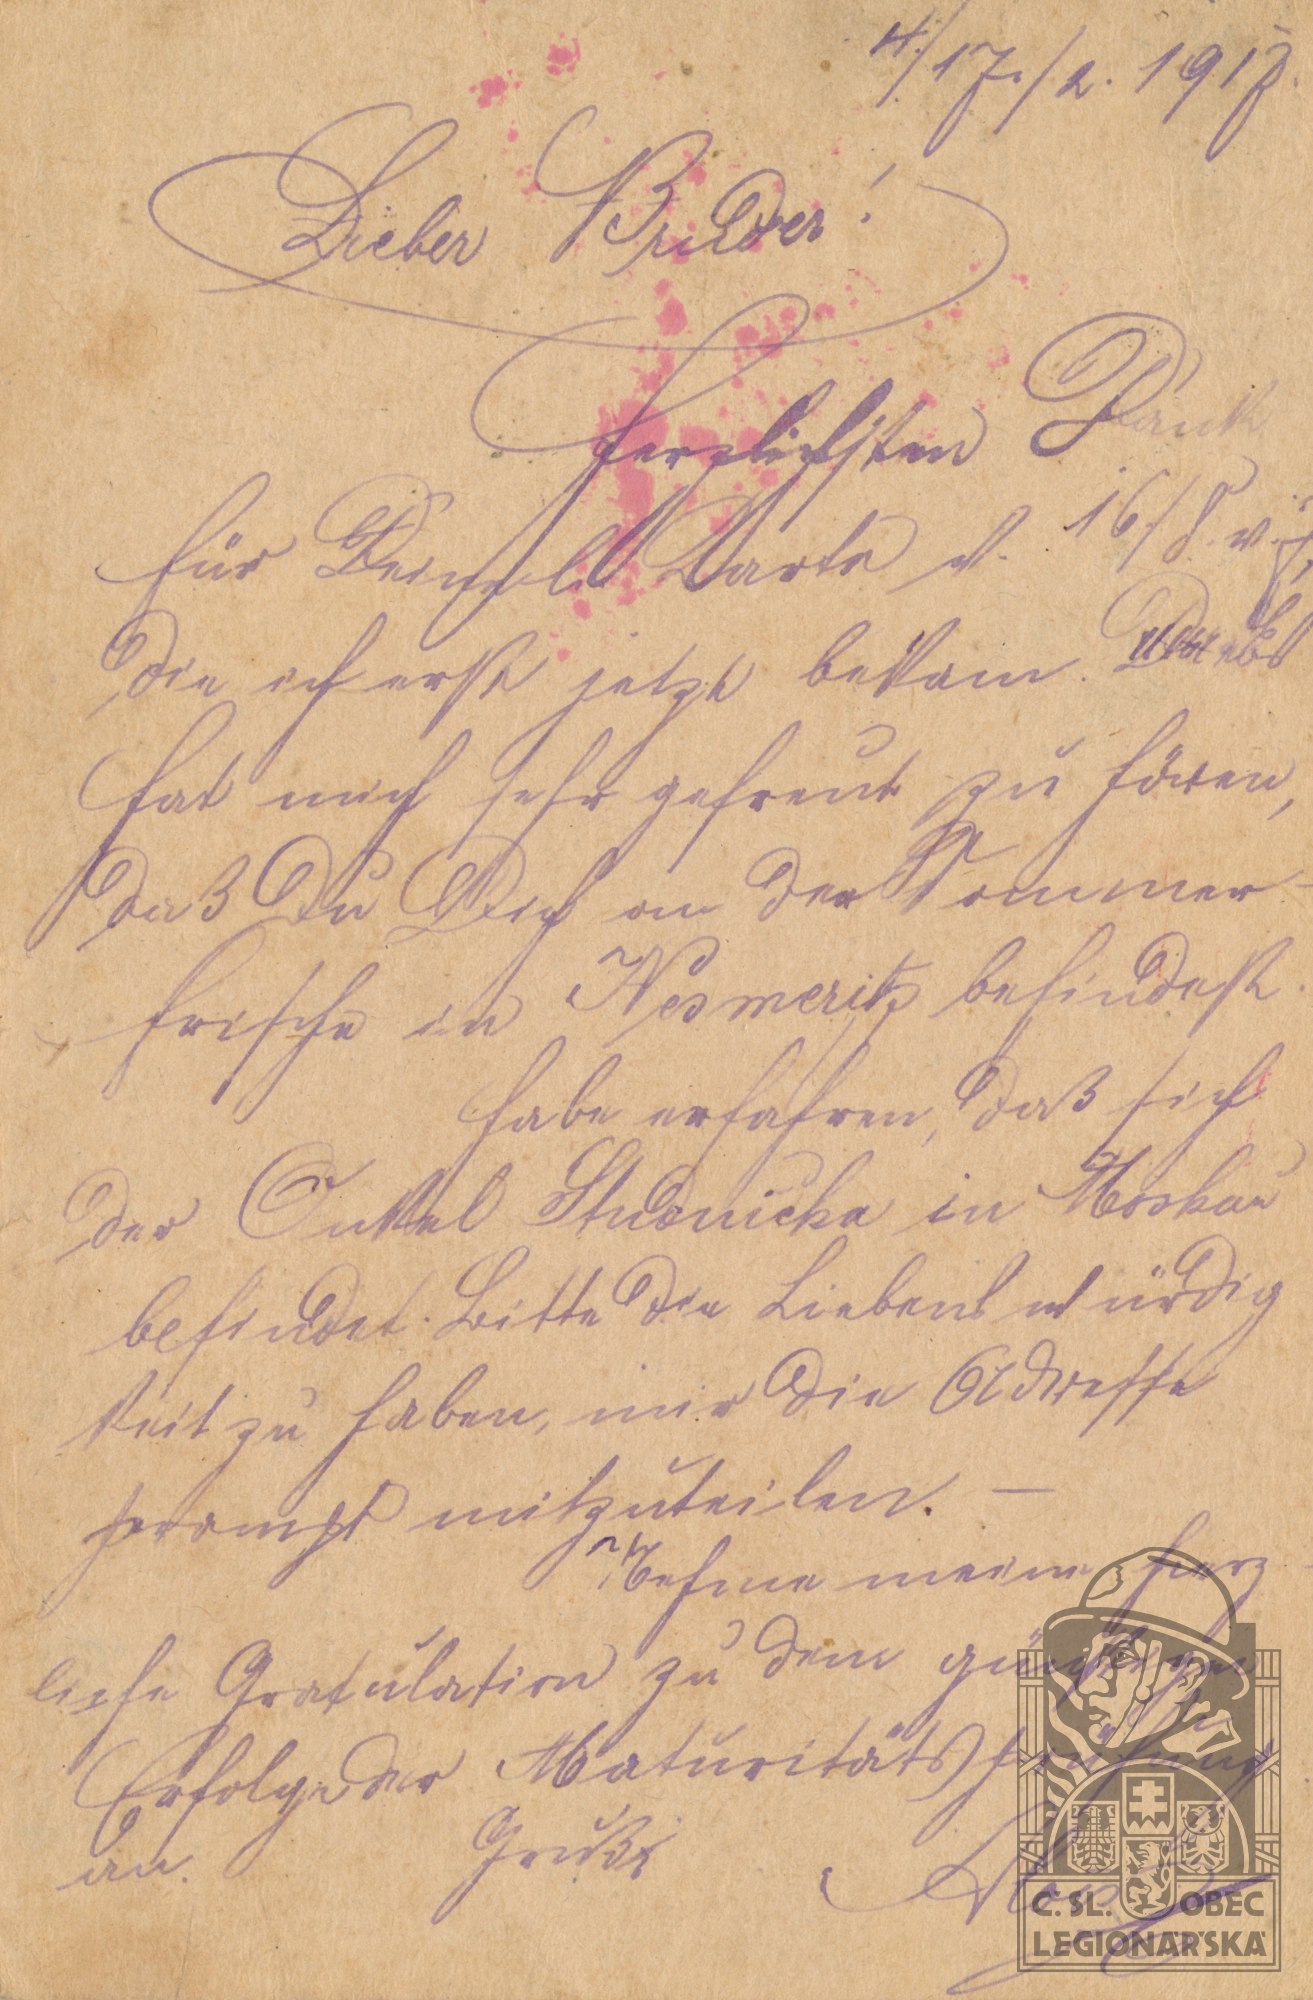 4./17./2. 1917.
Lieber Bruder!
Herzlichsten Dank
für Deine l. Karte v. 16/8. v. J.,
die ich erst jetzt bekam.
hat mich sehr gefreut zu hören,
daß Du Dich in der Sommer-
frische in Nesmeritz befindest.
Habe erfahren, daß sich
der Onkel Studnicka in Moskau
befindet. Bitte die Liebenswürdig
keit zu haben, mir die Adresse
prompt mitzuteilen. —
Nehme meine herz
liche Gratulation zu dem günstigen
Erfolge der Maturitätsprüfung
an. Grüße
Č. SL. OBEC
LEGIONÁŘSKÁ